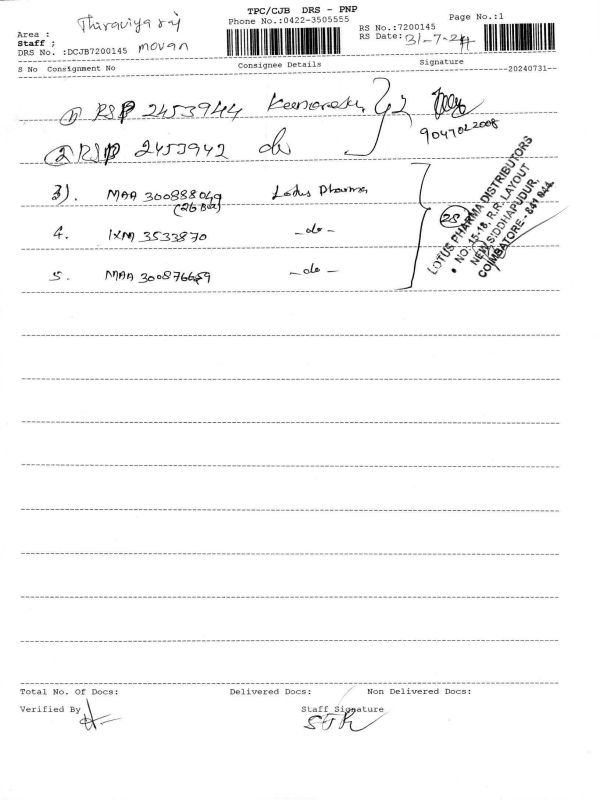 TPC/CJB DRS - PNP
Phone No.:0422-3505555
Page No.:1
Area :
Thiraviya raj
Staff ;
RS No.:7200145
DRS No. :DCJB7200145
movan
RS Date: 31-7-24
S No Consignment No
Consignee Details
Signature
20240731
1) RSP 2453944
9047012008
2 RSP 2453942 do
3). MAA 300888049 Lotus Pharma
(26 Box)
4. IXM 3533870 -do-
5. MAA 300876659 -do-
28
LOTUS PHARMA DISTRIBUTORS
NO. 15-18, R.R. LAYOUT
NEW SIDDHAPUDUR,
COIMBATORE - 641 044.
Total No. Of Docs: Delivered Docs: Non Delivered Docs:
Verified By
Staff Signature
STR